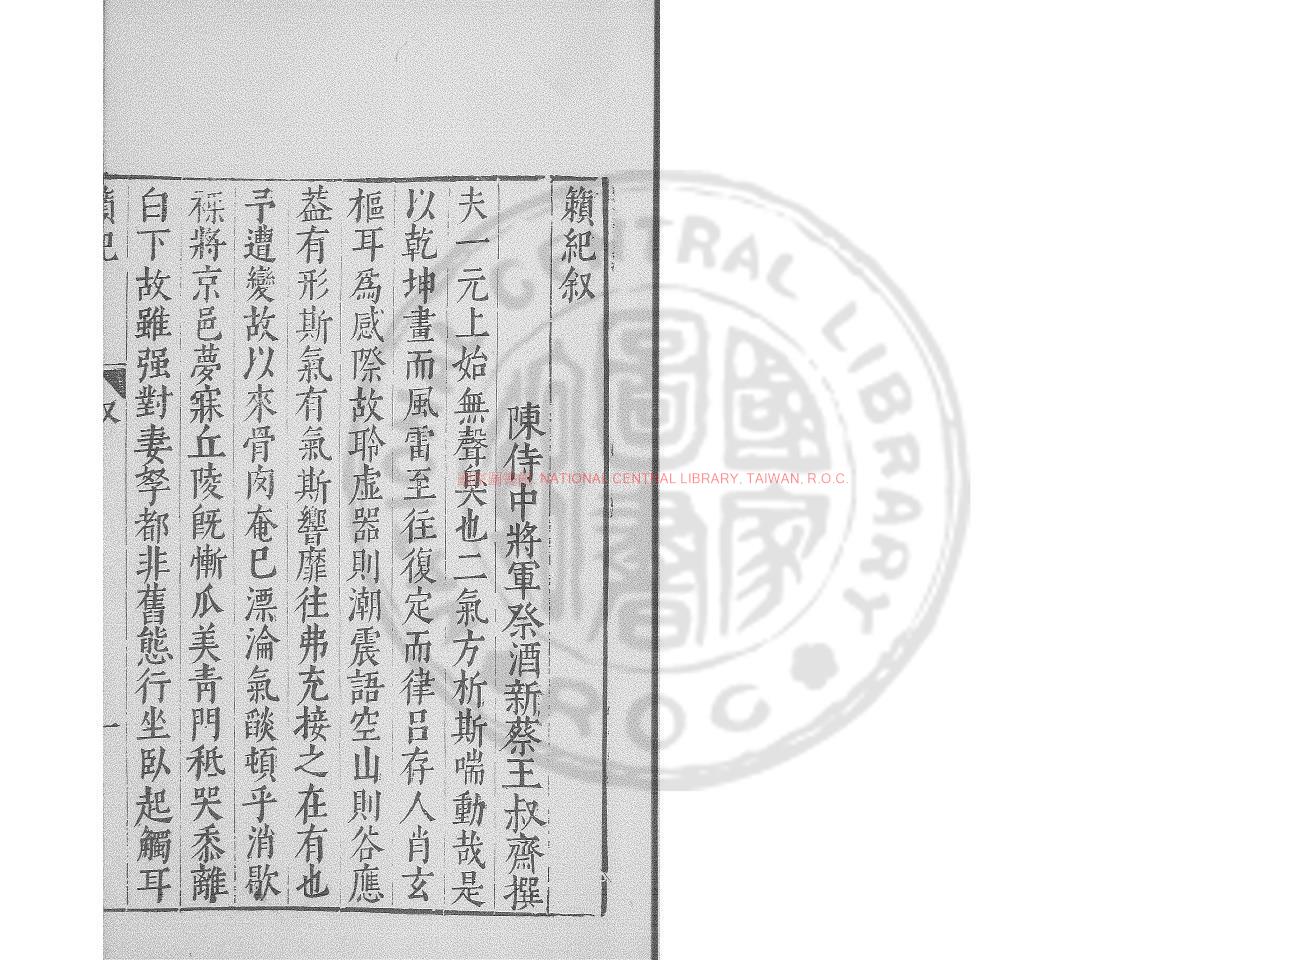 籟紀叙
陳侍中將軍祭酒新蔡王叔齋撰
夫一元上始無聲臭也二氣方析斯喘動哉是
以乾坤畫而風雷至往復定而律呂存人肖玄
樞耳爲感際故聆虛器則潮震語空山則谷應
葢有形斯氣有氣斯響靡往弗充接之在有也
予遭變故以來骨肉奄巳漂淪氣燄頓乎消歇
裸將京邑夢寐丘陵旣慚瓜美靑門秪哭黍離
白下故雖强對妻孥都非舊態行坐臥起觸耳
籟紀
叙
一
NATIONAL CENTRAL LIBRARY, TAIWAN, R.O.C.
國家圖書館
CENTRAL LIBRARY
R.O.C.